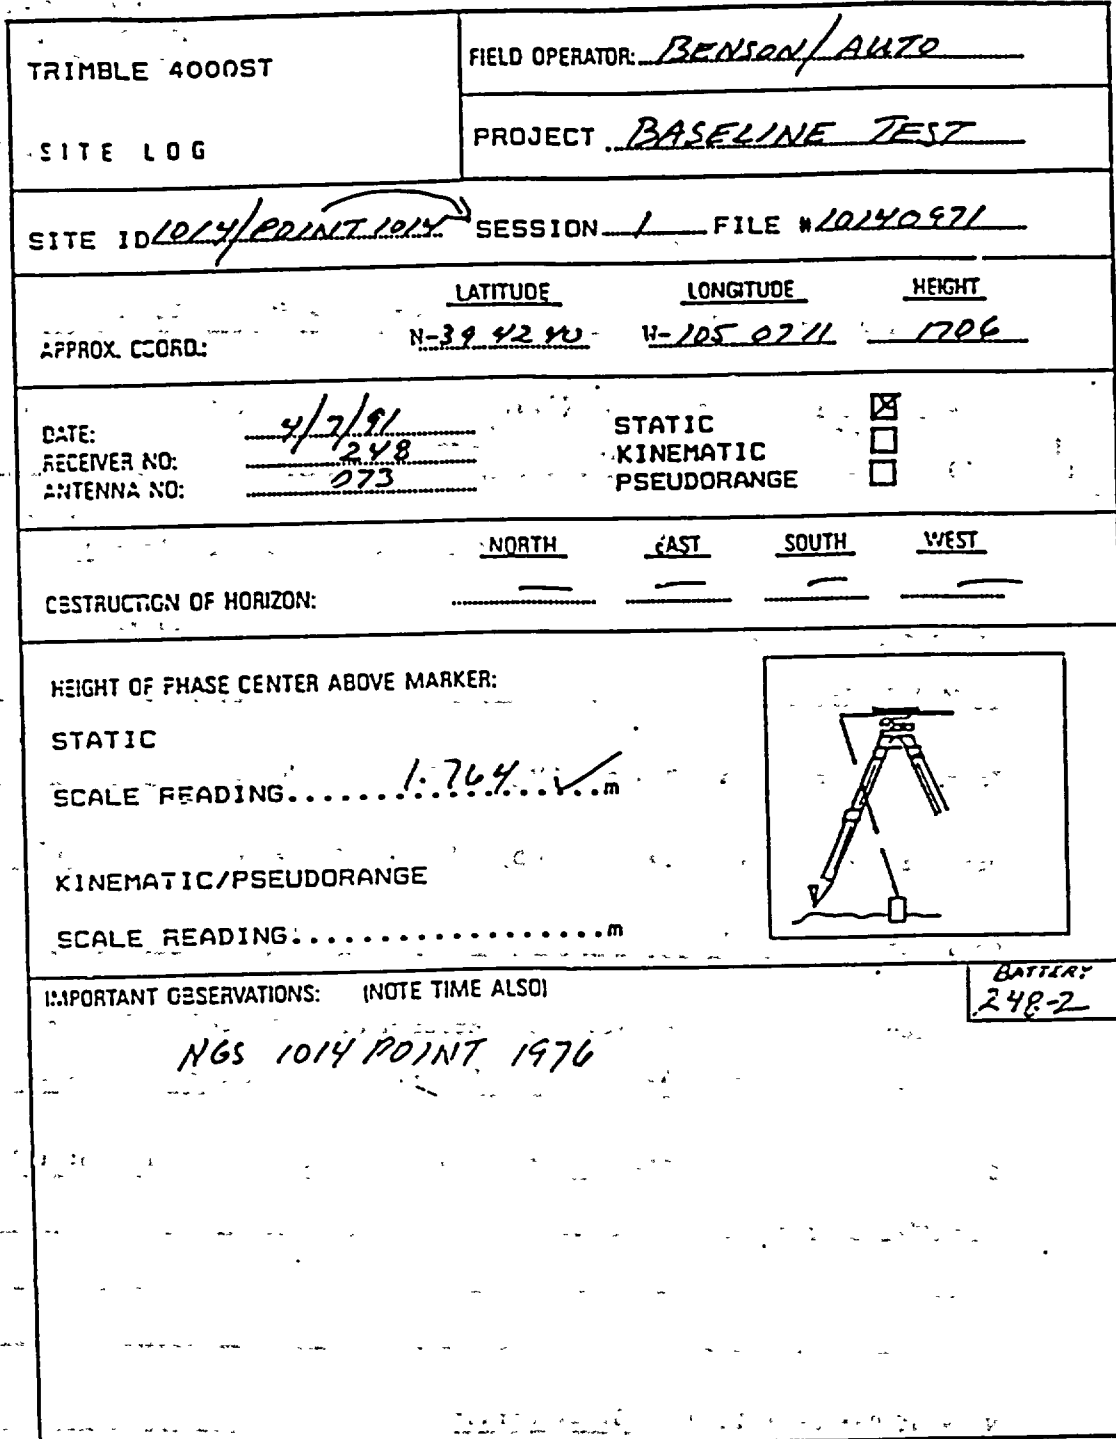 TRIMBLE 4000ST
SITE LOG
FIELD OPERATOR: BENSON/AUTO
PROJECT BASELINE TEST
SITE ID 1014/POINT 1014 SESSION 1 FILE # 10140971
LATITUDE LONGITUDE HEIGHT
APPROX. COORD.: N-39 42 40 W-105 07 11 1706
DATE: 4/7/91
RECEIVER NO: 248
ANTENNA NO: 073
STATIC
KINEMATIC
PSEUDORANGE
NORTH EAST SOUTH WEST
OBSTRUCTION OF HORIZON: — — — —
HEIGHT OF PHASE CENTER ABOVE MARKER:
STATIC
SCALE READING.....1.764.....m
KINEMATIC/PSEUDORANGE
SCALE READING:..................m
IMPORTANT OBSERVATIONS: (NOTE TIME ALSO)
BATTERY
248-2
NGS 1014 POINT 1976